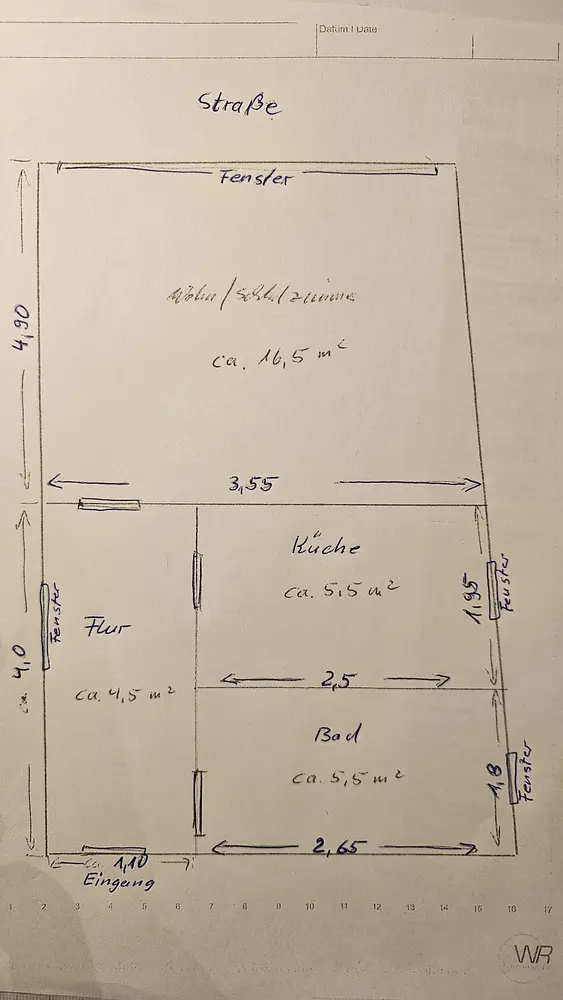 Datum | Date
Straße
Fenster
Wohn/Schlafzimmer
ca. 16,5 m²
4,90
3,55
Küche
ca. 5,5 m²
1,95
Fenster
Fenster
Flur
ca. 4,5 m²
ca. 4,0
2,5
Bad
ca. 5,5 m²
1,8
Fenster
2,65
ca. 1,10
Eingang
1 2 3 4 5 6 7 8 9 10 11 12 13 14 15 16 17
WR